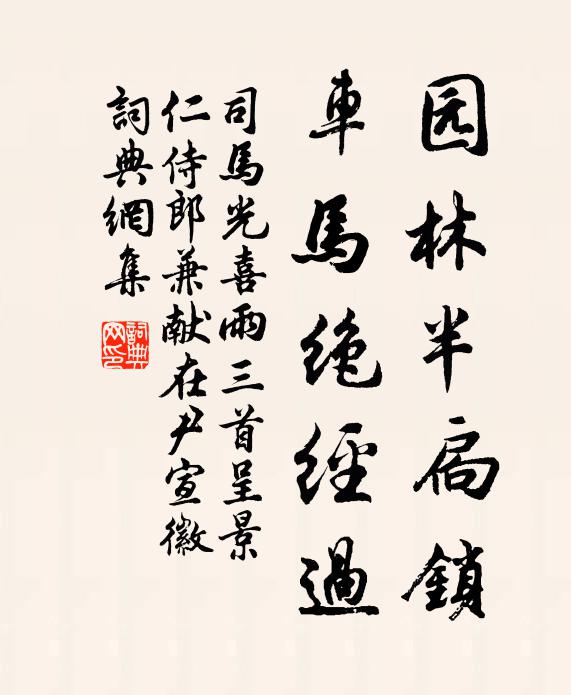 园林半扃鎖
車馬絶經過
司馬光喜雨三首呈景
仁侍郎兼献在尹宣徽
詞典網集
詞典网印